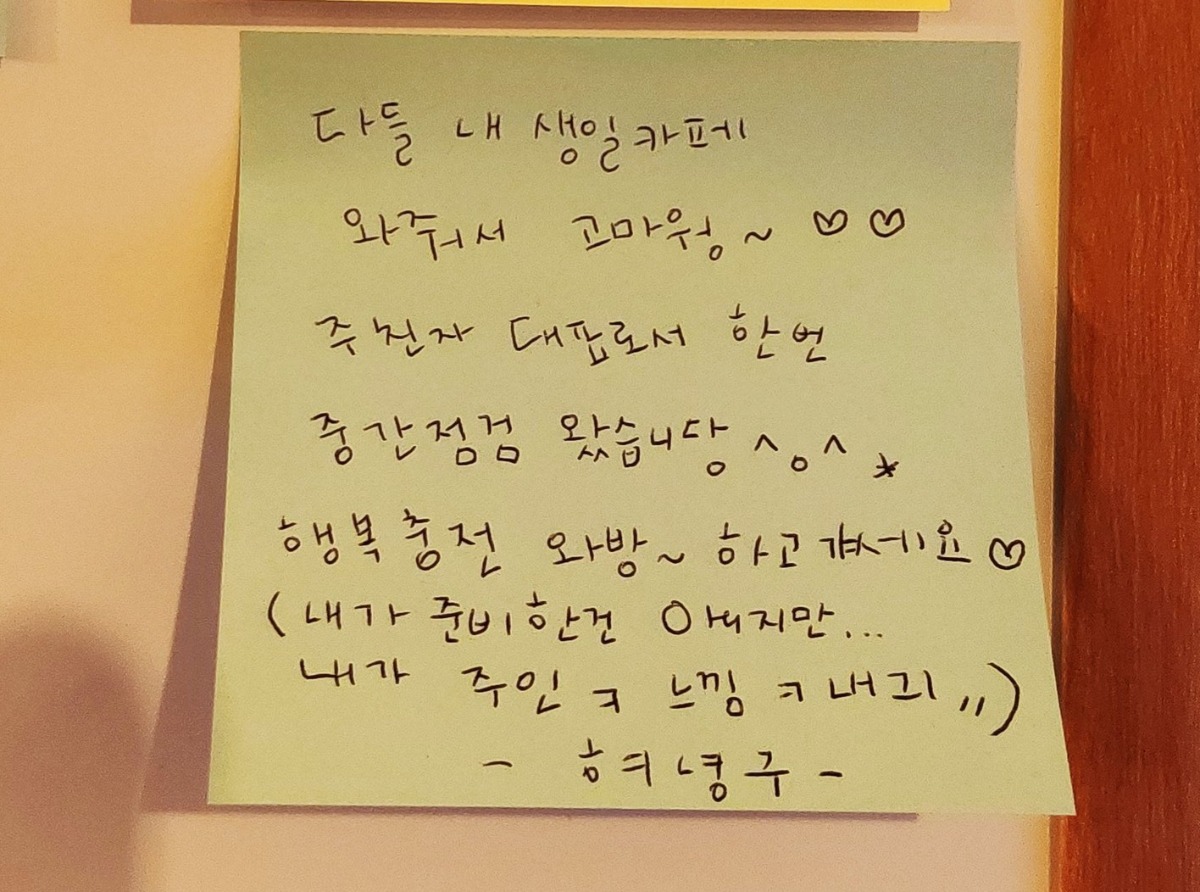 다들 내 생일카페
와줘서 고마웡~ ♡♡
주최자 대표로서 한번
중간점검 왔습니당 ^o^*
행복충전 와방~ 하고가세요♡
(내가 준비한건 아니지만...
내가 주인ㅋ 느낌ㅋ내긔,,)
- 혀녕구 -